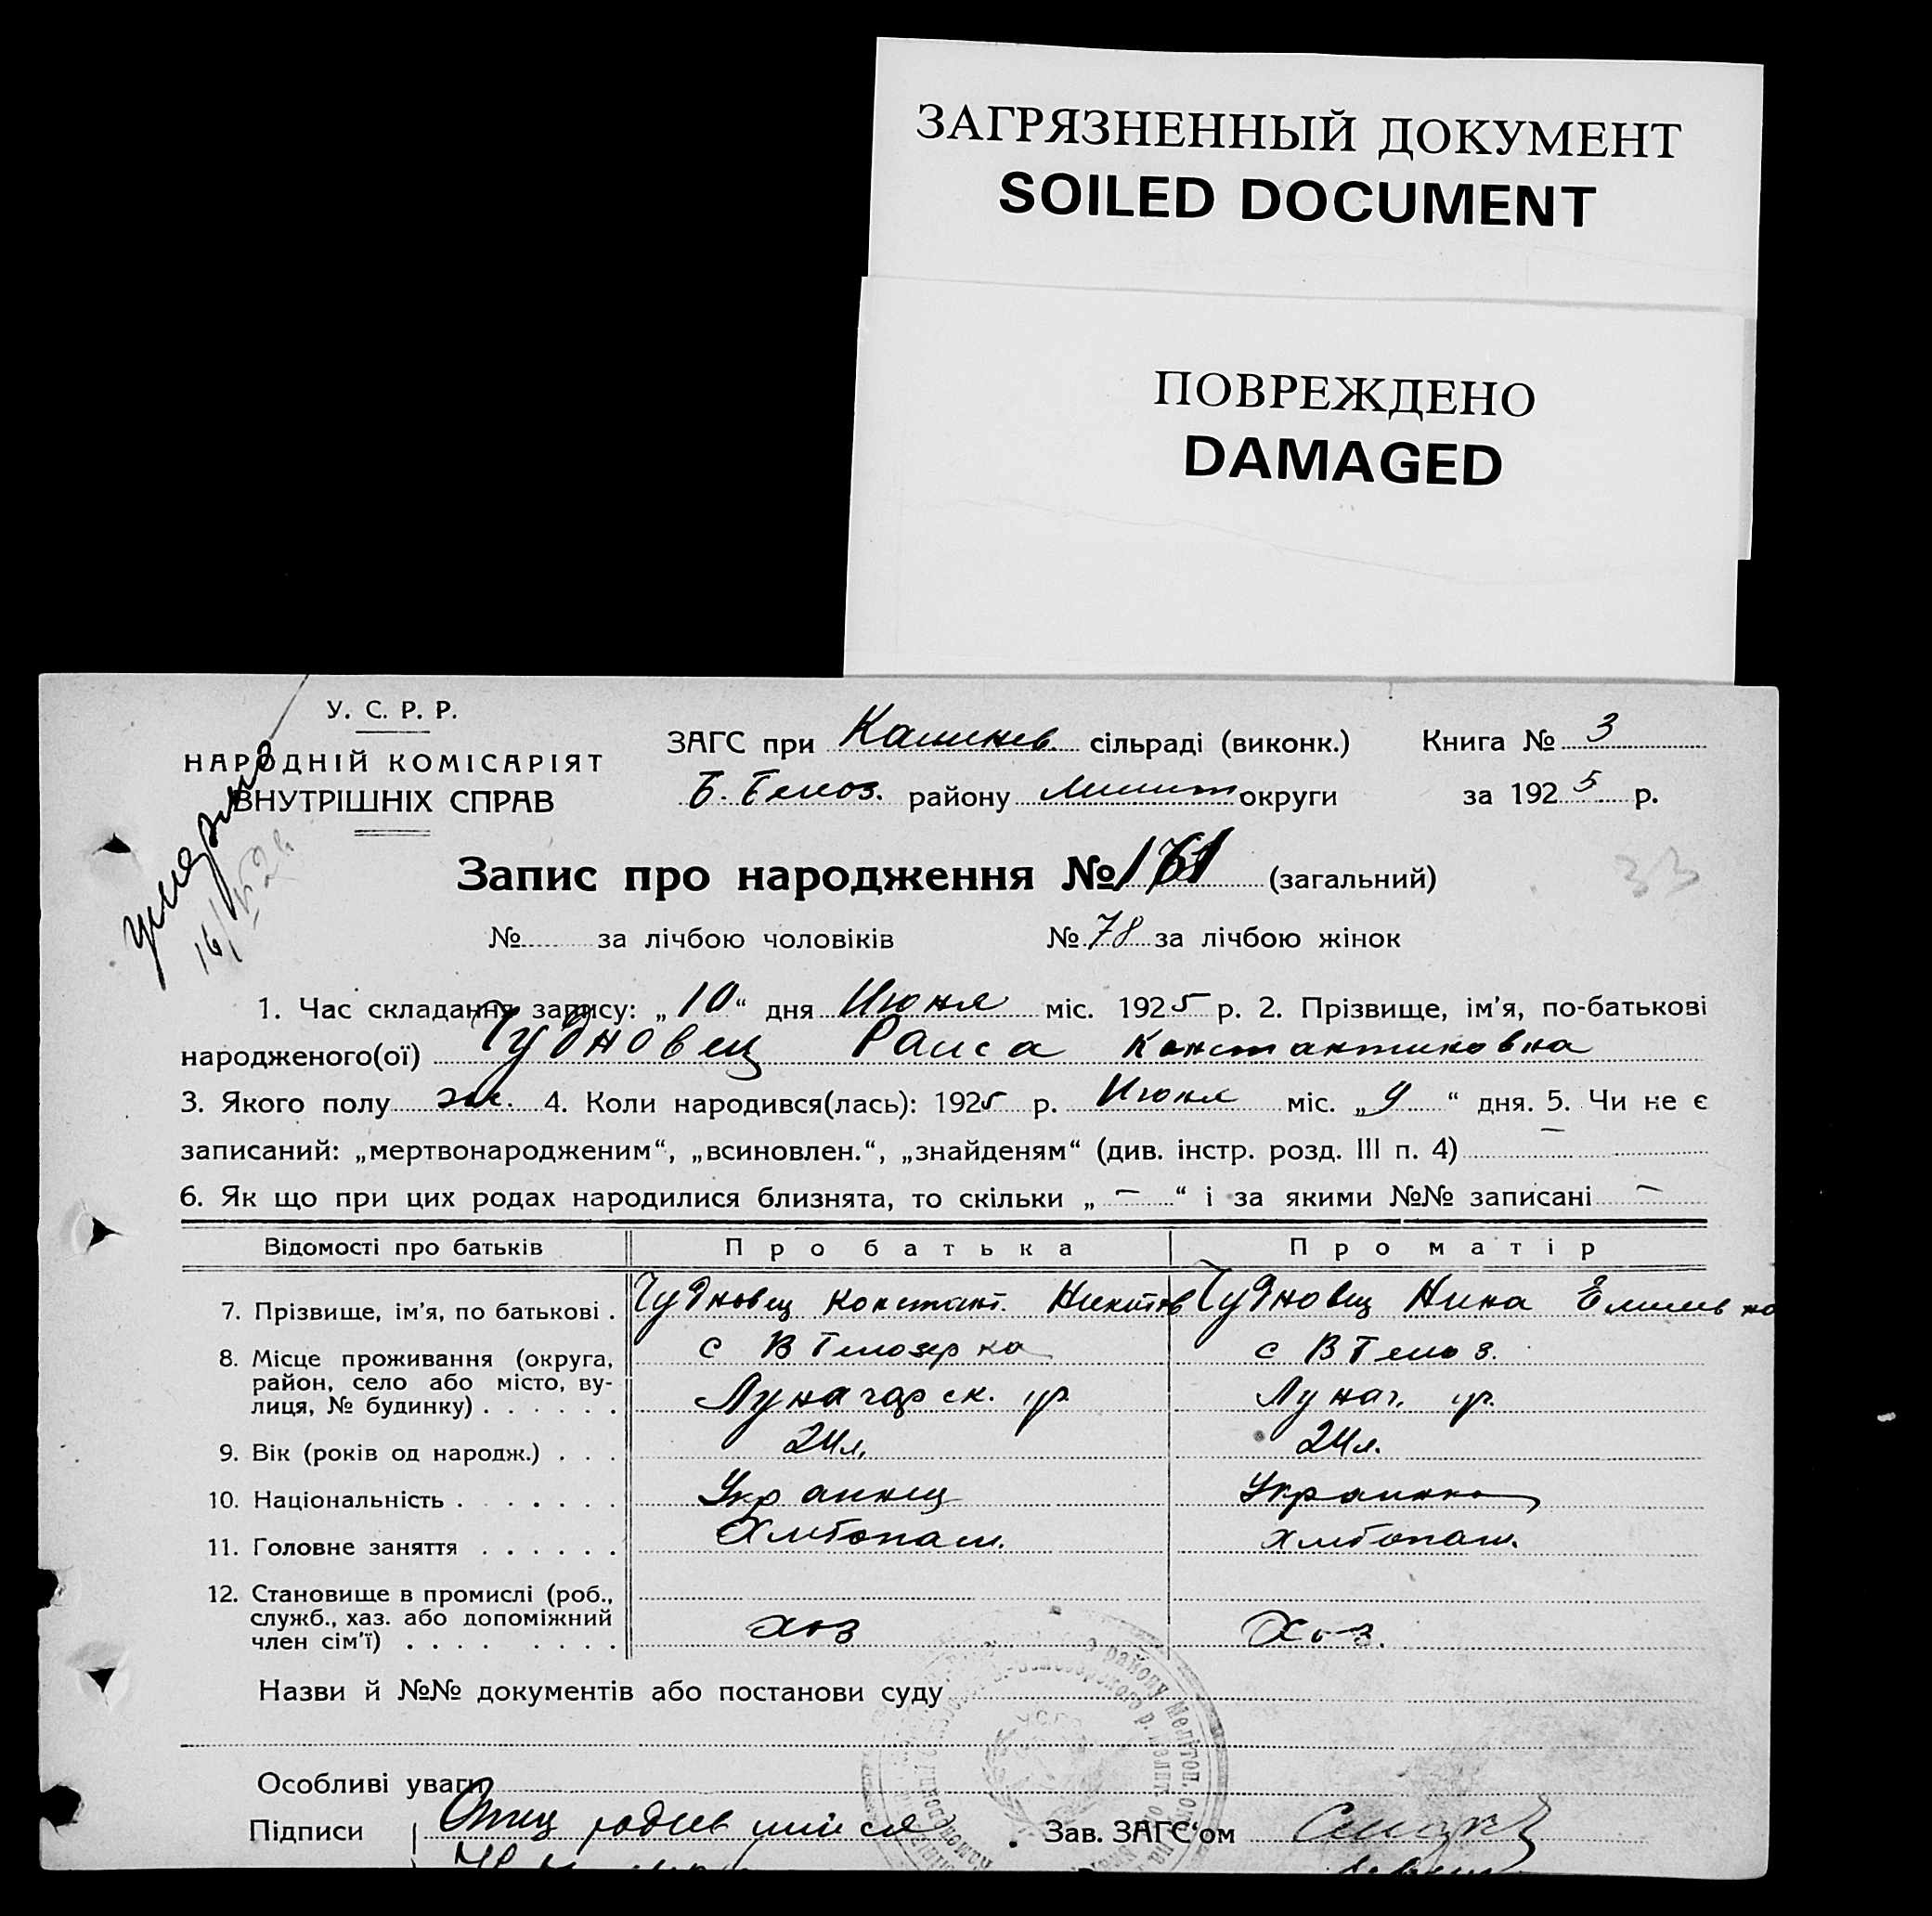 ЗАГРЯЗНЕННЫЙ ДОКУМЕНТ
SOILED DOCUMENT
ПОВРЕЖДЕНО
DAMAGED
У. С. Р. Р.
НАРОДНІЙ КОМІСАРІЯТ
ВНУТРІШНІХ СПРАВ
умерла
ЗАГС при сільраді (виконк.) Книга № 3
Б. Белоз. району Мелит округи за 1925 р.
Запис про народження №161 (загальний)
33
№ за лічбою чоловіків №78 за лічбою жінок
1. Час складання запису: „10“ дня Июня міс. 1925 р. 2. Прізвище, ім'я, по-батькові
народженого(ої) Чудновец Раиса Константиновна
3. Якого полу жен. 4. Коли народився(лась): 1925 р. Июня міс. „9“ дня. 5. Чи не є
записаний: „мертвонародженим“, „всиновлен.“, „знайденям“ (див. інстр. розд. III п. 4) —
6. Як що при цих родах народилися близнята, то скільки „—“ і за якими №№ записані —
Відомості про батьків Про батька Про матір
7. Прізвище, ім'я, по батькові . Чудновец Констант. Никитов Чудновец Нина
8. Місце проживання (округа, с Б Белозерка с Б Белоз.
район, село або місто, ву-
лиця, № будинку) . . . . . . Луначарск. ул. Лунач. ул.
9. Вік (років од народж.) . . . 24 л. 24 л.
10. Національність . . . . . . . Украинец Украинка
11. Головне заняття . . . . . . Хлебопаш. хлебопаш.
12. Становище в промислі (роб.,
служб., хаз. або допоміжний
член сім'ї) . . . . . . . . . хоз Хоз.
Назви й №№ документів або постанови суду
Особливі уваги
Підписи Отец родившийся Зав. ЗАГС‘ом